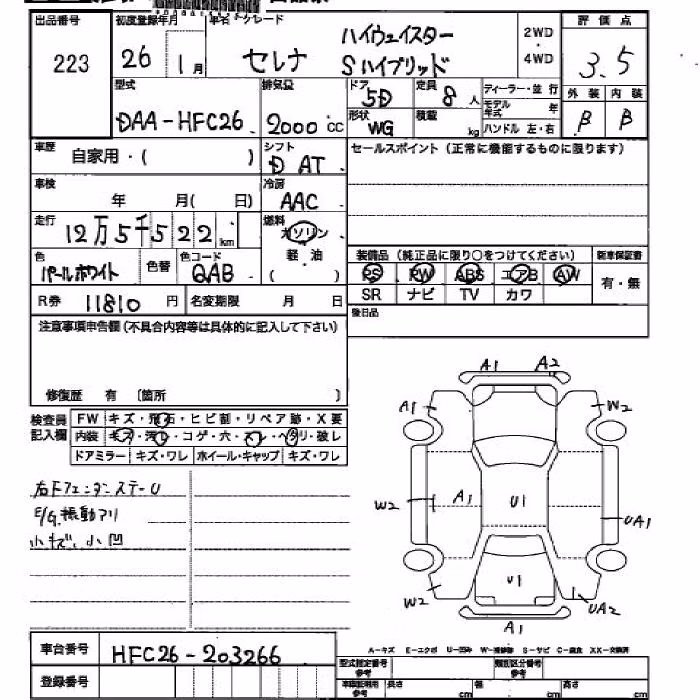 出品番号
223
初度登録年月
26 1月
車名・グレード
セレナ
ハイウェイスター
Sハイブリッド
2WD
・
4WD
評価点
3.5
型式
DAA-HFC26
排気量
2000cc
ドア
5D
定員
8人
形状
WG
積載
kg
ディーラー・並行
モデル年式 年
ハンドル 左・右
外装 内装
B B
車歴
自家用・( )
シフト
D AT
セールスポイント (正常に機能するものに限ります)
車検
年 月( 日)
冷房
AAC
走行
12万5千522km
燃料
ガソリン
軽・油
( )
色
パールホワイト
色替
色コード
QAB
装備品 (純正品に限り○をつけてください)
新車保証書
PS PW ABS エアB AW
有・無
SR ナビ TV カワ
R券 11810円
名変期限 月 日
後日品
注意事項申告欄(不具合内容等は具体的に記入して下さい)
修復歴 有 〔箇所 〕
検査員
記入欄
FW キズ・飛石・ヒビ割・リペア跡・X要
内装 キズ・汚レ・コゲ・穴・スレ・ヘタリ・破レ
ドアミラー キズ・ワレ ホイール・キャップ キズ・ワレ
右Fフェンダーステー U
E/G振動アリ
小キズ、小凹
A1 A2
A1 W2
W2 A1 U1 UA1
U1
W2 UA2
A1
A-キズ E-エクボ U-凹み W-補修跡 S-サビ C-腐食 XX-交換済
車台番号
HFC26-203266
登録番号
型式指定番号
参考
類別区分番号
参考
車検証明用
参考
長さ cm 幅 cm 高さ cm